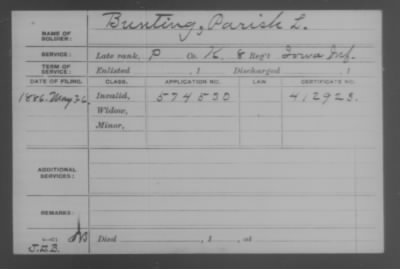 NAME OF SOLDIER: Bunting, Parish L.
SERVICE: Late rank, P Co. K, 8 Reg't Iowa Inf.
TERM OF SERVICE: Enlisted , 1 Discharged , 1
DATE OF FILING. CLASS. APPLICATION NO. LAW. CERTIFICATE NO.
1886. May 26 Invalid, 574530 412923.
Widow,
Minor,
ADDITIONAL SERVICES:
REMARKS:
Died , 1 , at
J.D.B.